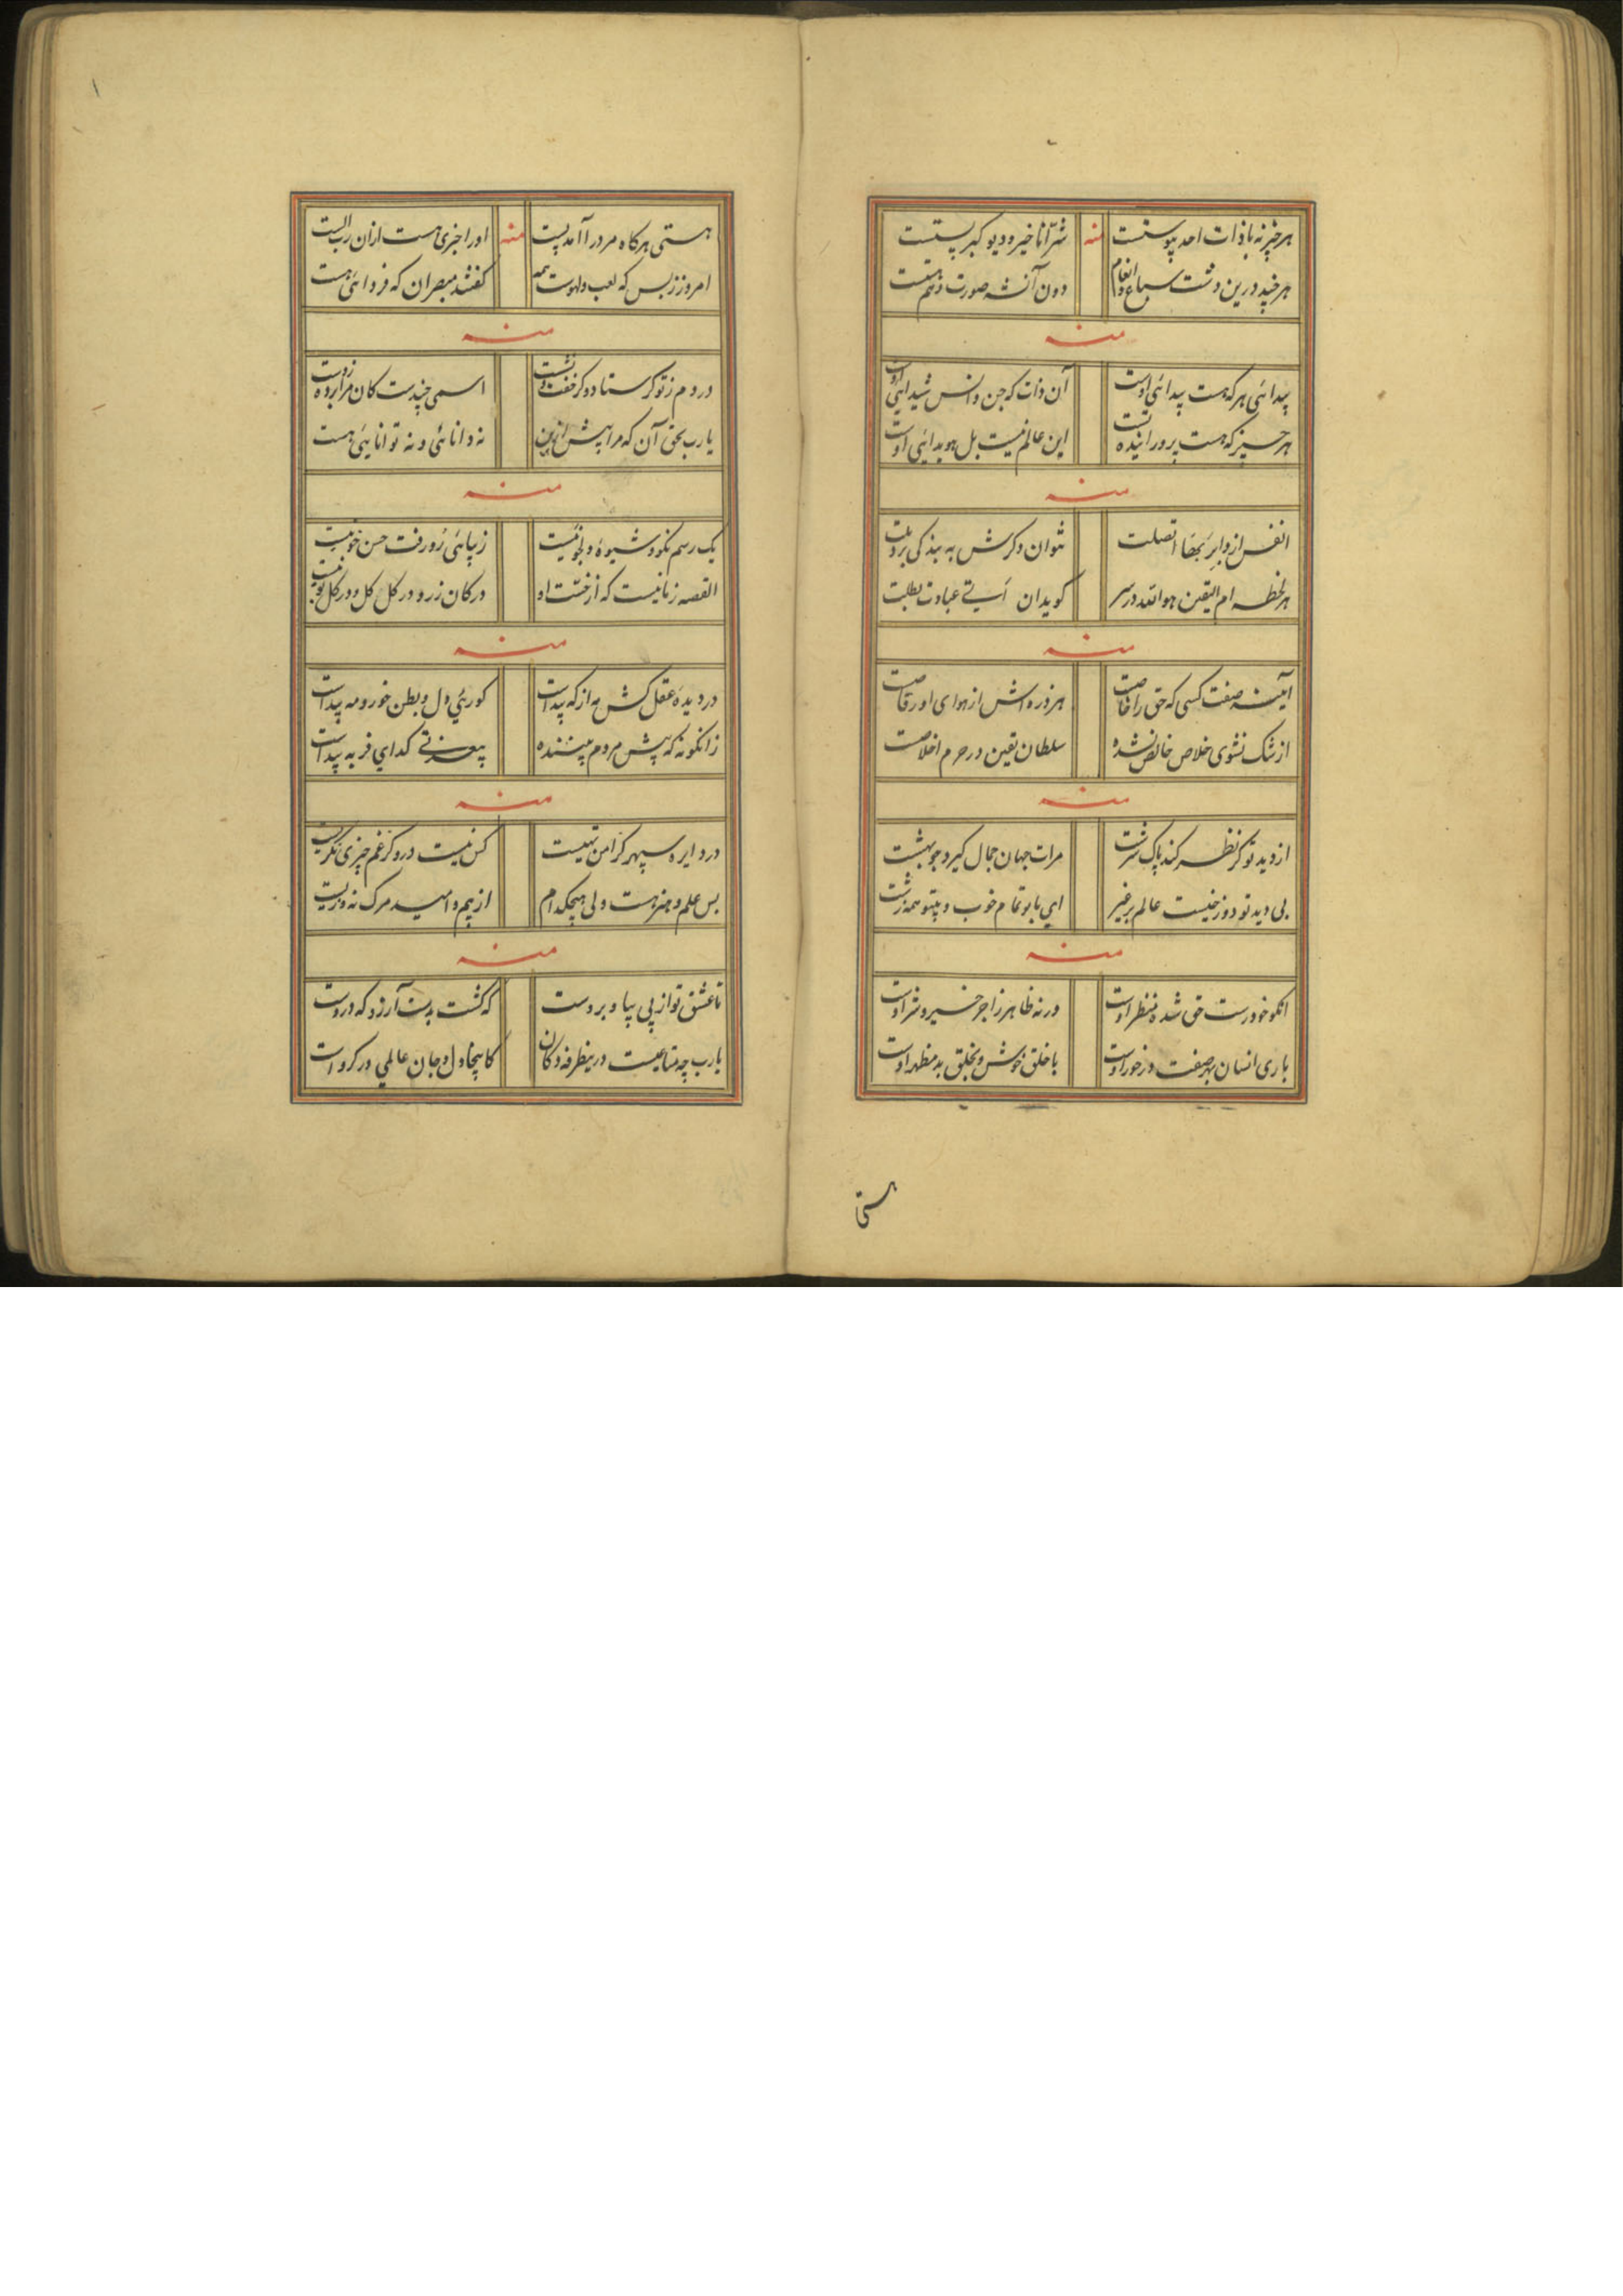 هرچیز نه باذات احد پیوستست
منه
شر آنا خیر و دیو کبر پستست
هرچند درین دشت سباع و انعام
دون آنشه صورت
منه
پیدائی هرکه هست پیدائی اوست
آن ذات که جن و انس شیدائی اوست
هر چیز که هست پرورانیده
این عالم نیست بل هویدائی اوست
منه
انفس از دوایر
نتوان و کرش به بندکی برد
هر لحظه ام الیقین هوالله در سر
کویدان عبادت بطلت
منه
آیینه صفت کسی که حق را خاصت
هر ذره اش از هوای او رقاصت
از شک نشوی خلاص خالص نشده
سلطان یقین در حرم اخلاصت
منه
از دید تو کر نظر کند پاک سرشت
مرات جهان جمال کیرد چو بهشت
بی دید تو دوزخیست عالم برخیز
ای با تو تمام خوب و بیتو همه زشت
منه
انکو خودرست حق شده منظر اوست
ورنه ظاهر زاجر خیر و شر اوست
باری انسان بهر صفت در خور اوست
با خلق خوش و بخلق بد مظهر اوست
هستی
هستی هرکاه مر در آمد پست
منه
او را خبری هست ازان
امروز ز بس که لعب و لهوست همه
کفتند مبصران که فردائی هست
منه
در وم ز تو کر ستاده کر خفت
اسمی چندست کان مرا
یارب بحق آن که مرا پیش ازین
نه دانائی و نه توانایی هست
منه
یک رسم نکو و شیوه دلجو نیست
زیبائی رو رفت حسن خو نیست
القصه زنانیست که از خست او
در کان زر و در کل کل و در کل بو نیست
منه
در دیده عقل کش به از که پیداست
کورئی دل و بطن خور و مه پیداست
زانکونه که پیش مردم بیننده
پیدا کدای فربه پیداست
منه
در دایره سپهر کز امن تهیست
کس نیست درو کز غم چیزی نکریست
بس علم و هنر هست ولی هیچکدام
از بیم و امید مرک نه
منه
تا عشق تو از پی بیا و بروست
که کشت بدست آرزو که دروست
یارب چه متاعیست درینطرفه دکان
کاینجا دل و جان عالمی در کروست